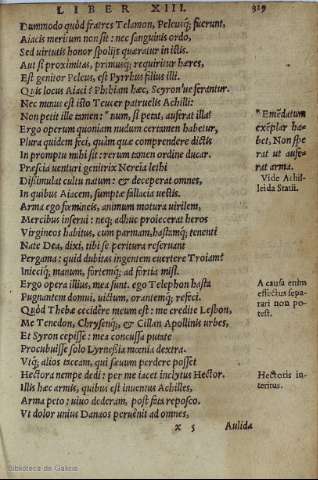 LIBER XIII. 329
Dummodo quòd fratres Telamon, Peleusq́; fuerunt,
Aiacis meritum non sit: nec sanguinis ordo,
Sed uirtutis honor spolijs quæratur in istis.
Aut si proximitas, primusq́; requiritur hæres,
Est genitor Peleus, est Pyrrhus filius illi.
Quis locus Aiaci? Phthiam hæc, Scyron'ue ferantur.
Nec minus est isto Teucer patruelis Achilli:
Non petit ille tamen: num, si petat, auferat illa?
Ergo operum quoniam nudum certamen habetur,
Plura quidem feci, quàm quæ comprendere dictis
In promptu mihi sit: rerum tamen ordine ducar.
Præscia uenturi genitrix Nereia lethi
Dissimulat cultu natum: & deceperat omnes,
In quibus Aiacem, sumptæ fallacia uestis.
Arma ego fœmineis, animum motura uirilem,
Mercibus inserui: neq; adhuc proiecerat heros
Virgineos habitus, cum parmam, hastamq́; tenenti
Nate Dea, dixi, tibi se peritura reseruant
Pergama: quid dubitas ingentem euertere Troiam?
Inieciq́; manum, fortemq́; ad fortia misi.
Ergo opera illius, mea sunt. ego Telephon hasta
Pugnantem domui, uictum, orantemq́; refeci.
Quòd Thebæ cecidêre meum est: me credite Lesbon,
Me Tenedon, Chrysenq́;, & Cillan Apollinis urbes,
Et Scyron cepisse: mea concussa putate
Procubuisse solo Lyrnessia mœnia dextra.
Vtq́; alios taceam, qui sæuum perdere posset
Hectora nempe dedi: per me iacet inclytus Hector.
Illis hæc armis, quibus est inuentus Achilles,
Arma peto: uiuo dederam, post fata reposco.
Vt dolor unius Danaos peruênit ad omnes,
x 5 Aulida
Emēdatum
exēplar ha-
bet, Non spe
rat ut aufe-
rat arma.
Vide Achil
leida Statii.
A causa enim
effectus sepa-
rari non po-
test.
Hectoris in-
teritus.
Biblioteca de Galicia